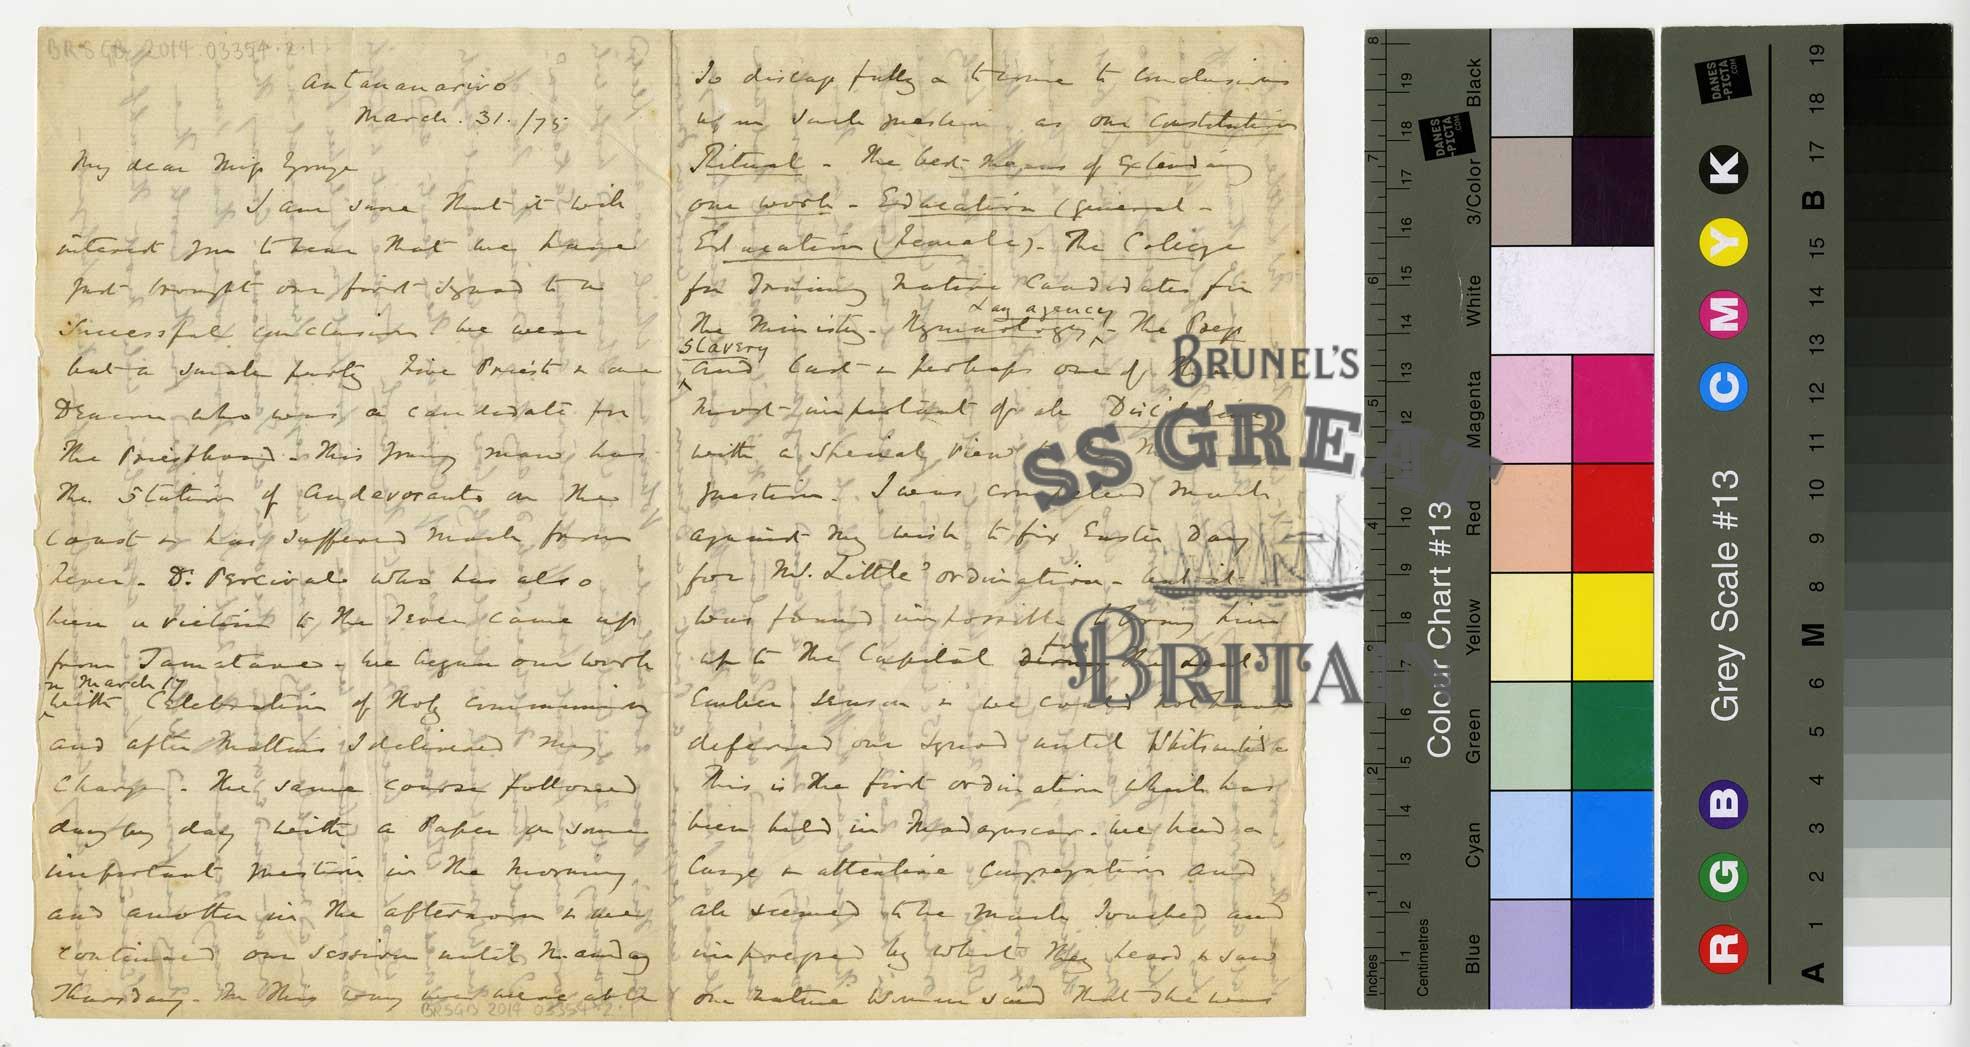 BRSGB 2014.03354.2.1
Antananarivo
March. 31. /75
My dear Miss
I am sure that it will
interest you to hear that we have
just brought our first Synod to a
successful conclusion. We were
but a small party Five Priests & one
Deacon who was a candidate for
the Priesthood. This young man has
the Station of Andevorante on the
Coast & has suffered much from
fever. Dr. Percival who has also
been a victim to the Fever came up
from Tamatave. We began our work
on March 17
with Celebration of Holy Communion
and after Mattins I delivered my
Charge. The same course followed
day by day with a Paper on some
important question in the Morning
and another in the afternoon & we
continued our session until Maunday
Thursday. In this way we were able
BRSGB 2014 03354.2.1
To discuss fully & to come to conclusions
upon such questions as our Constitution
Ritual - The best means of extending
our work - Education (general -
Education (female) - The College
for Training Native Candidates for
Lay agency
the Ministry - Hymnology, - The Press
Slavery
and last & perhaps one of the
most important of all Discipline
with a special view to
question. I was compelled much
against my wish to fix Easter Day
for Mr. Little's ordination - but it
was found impossible to bring him
up to the Capital the Lent
Ember season & we could not have
deferred our Synod until Whitsuntide
This is the first ordination which has
been held in Madagascar. We had a
large & attentive Congregation and
all seemed to be much touched and
impressed by what they heard & saw
one native woman said that she was
BRUNEL'S
SS GREAT
BRITAIN
Inches
1 2 3 4 5 6 7 8
Centimetres
1 2 3 4 5 6 7 8 9 10 11 12 13 14 15 16 17 18 19
Colour Chart #13
DANES
-PICTA
.COM
Blue
Cyan
Green
Yellow
Red
Magenta
White
3/Color
Black
R G B C M Y K
Grey Scale #13
DANES
-PICTA
.COM
A 1 2 3 4 5 6 M 8 9 10 11 12 13 14 15 B 17 18 19